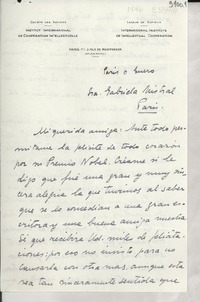 SOCIÉTÉ DES NATIONS
LEAGUE OF NATIONS
INSTITUT INTERNATIONAL
DE COOPÉRATION INTELLECTUELLE
INTERNATIONAL INSTITUTE
OF INTELLECTUAL CO-OPERATION
PARIS, 2, RUE DE MONTPENSIER
(PALAIS-ROYAL)
París 0 Enero
Sra. Gabriela Mistral
París.
Mi querida amiga: Ante todo per-
mítame la felicite de todo corazón
por su Premio Nobel. Créame si le
digo que fué una gran y muy since
ra alegría la que tuvimos al saber
que se lo concedían a una gran es-
critora y una buena amiga nuestra
Sé que recibirá Ud. miles de felicita-
ciones; por eso no insisto para no
cansarla con otra mas, aunque esta
sea tan sinceramente sentida que